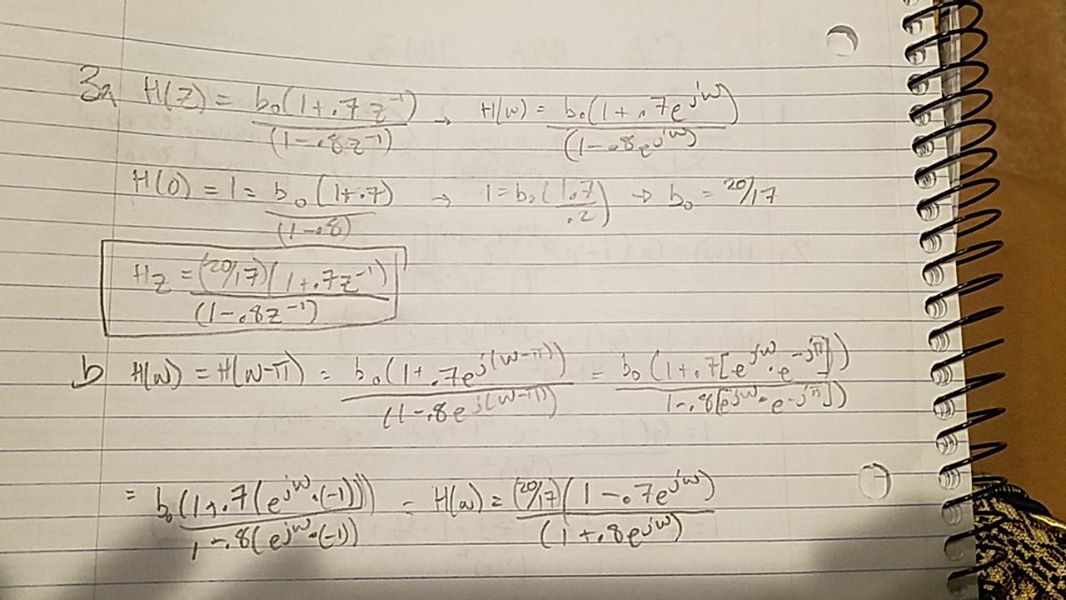 3a H(z) = b₀(1+.7z⁻¹)/(1-.8z⁻¹) → H(w) = b₀(1+.7e^jw)/(1-.8e^jw)
H(0) = 1 = b₀(1+.7)/(1-.8) → 1 = b₀(1.7/.2) → b₀ = 20/17
Hz = (20/17)(1+.7z⁻¹)/(1-.8z⁻¹)
b H(w) = H(w-π) = b₀(1+.7e^j(w-π))/(1-.8e^j(w-π)) = b₀(1+.7[e^jw·e^-jπ])/(1-.8[e^jw·e^-jπ])
= b₀(1+.7(e^jw·(-1)))/(1-.8(e^jw·(-1))) = H(w) = (20/17)(1-.7e^jw)/(1+.8e^jw)